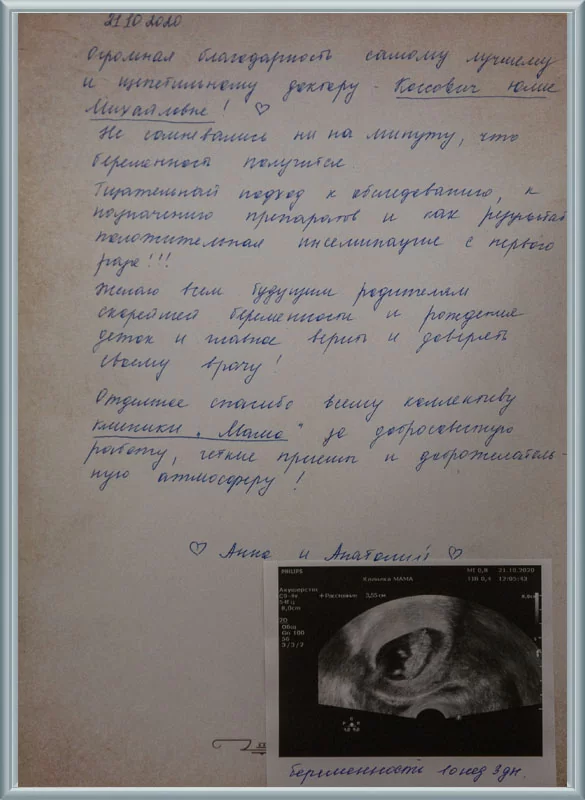 21.10.2020
Огромная благодарность самому лучшему
и щепетильному доктору - Коссович Юлие
Михайловне! ♡
Не сомневались ни на минуту, что
беременность получится.
Тщательный подход к обследованию, к
назначению препаратов и как результат
положительная инсеминация с первого
раза!!!
Желаю всем будущим родителям
скорейшей беременности и рождения
деток и главное верить и доверять
своему врачу!
Отдельное спасибо всему коллективу
клиники „Мама" за добросовестную
работу, четкие приемы и доброжелатель-
ную атмосферу!
♡ Анна и Анатолий ♡
PHILIPS
MI 0,8 21.10.2020
Клиника МАМА
TIB 0,4 12:05:42
Акушерство
C5-4e
+ Расстояние 3,55 см
8,0cm
2D
Общ
Gn 100
56
3/3/7
беременности 10 нед 3 дн.